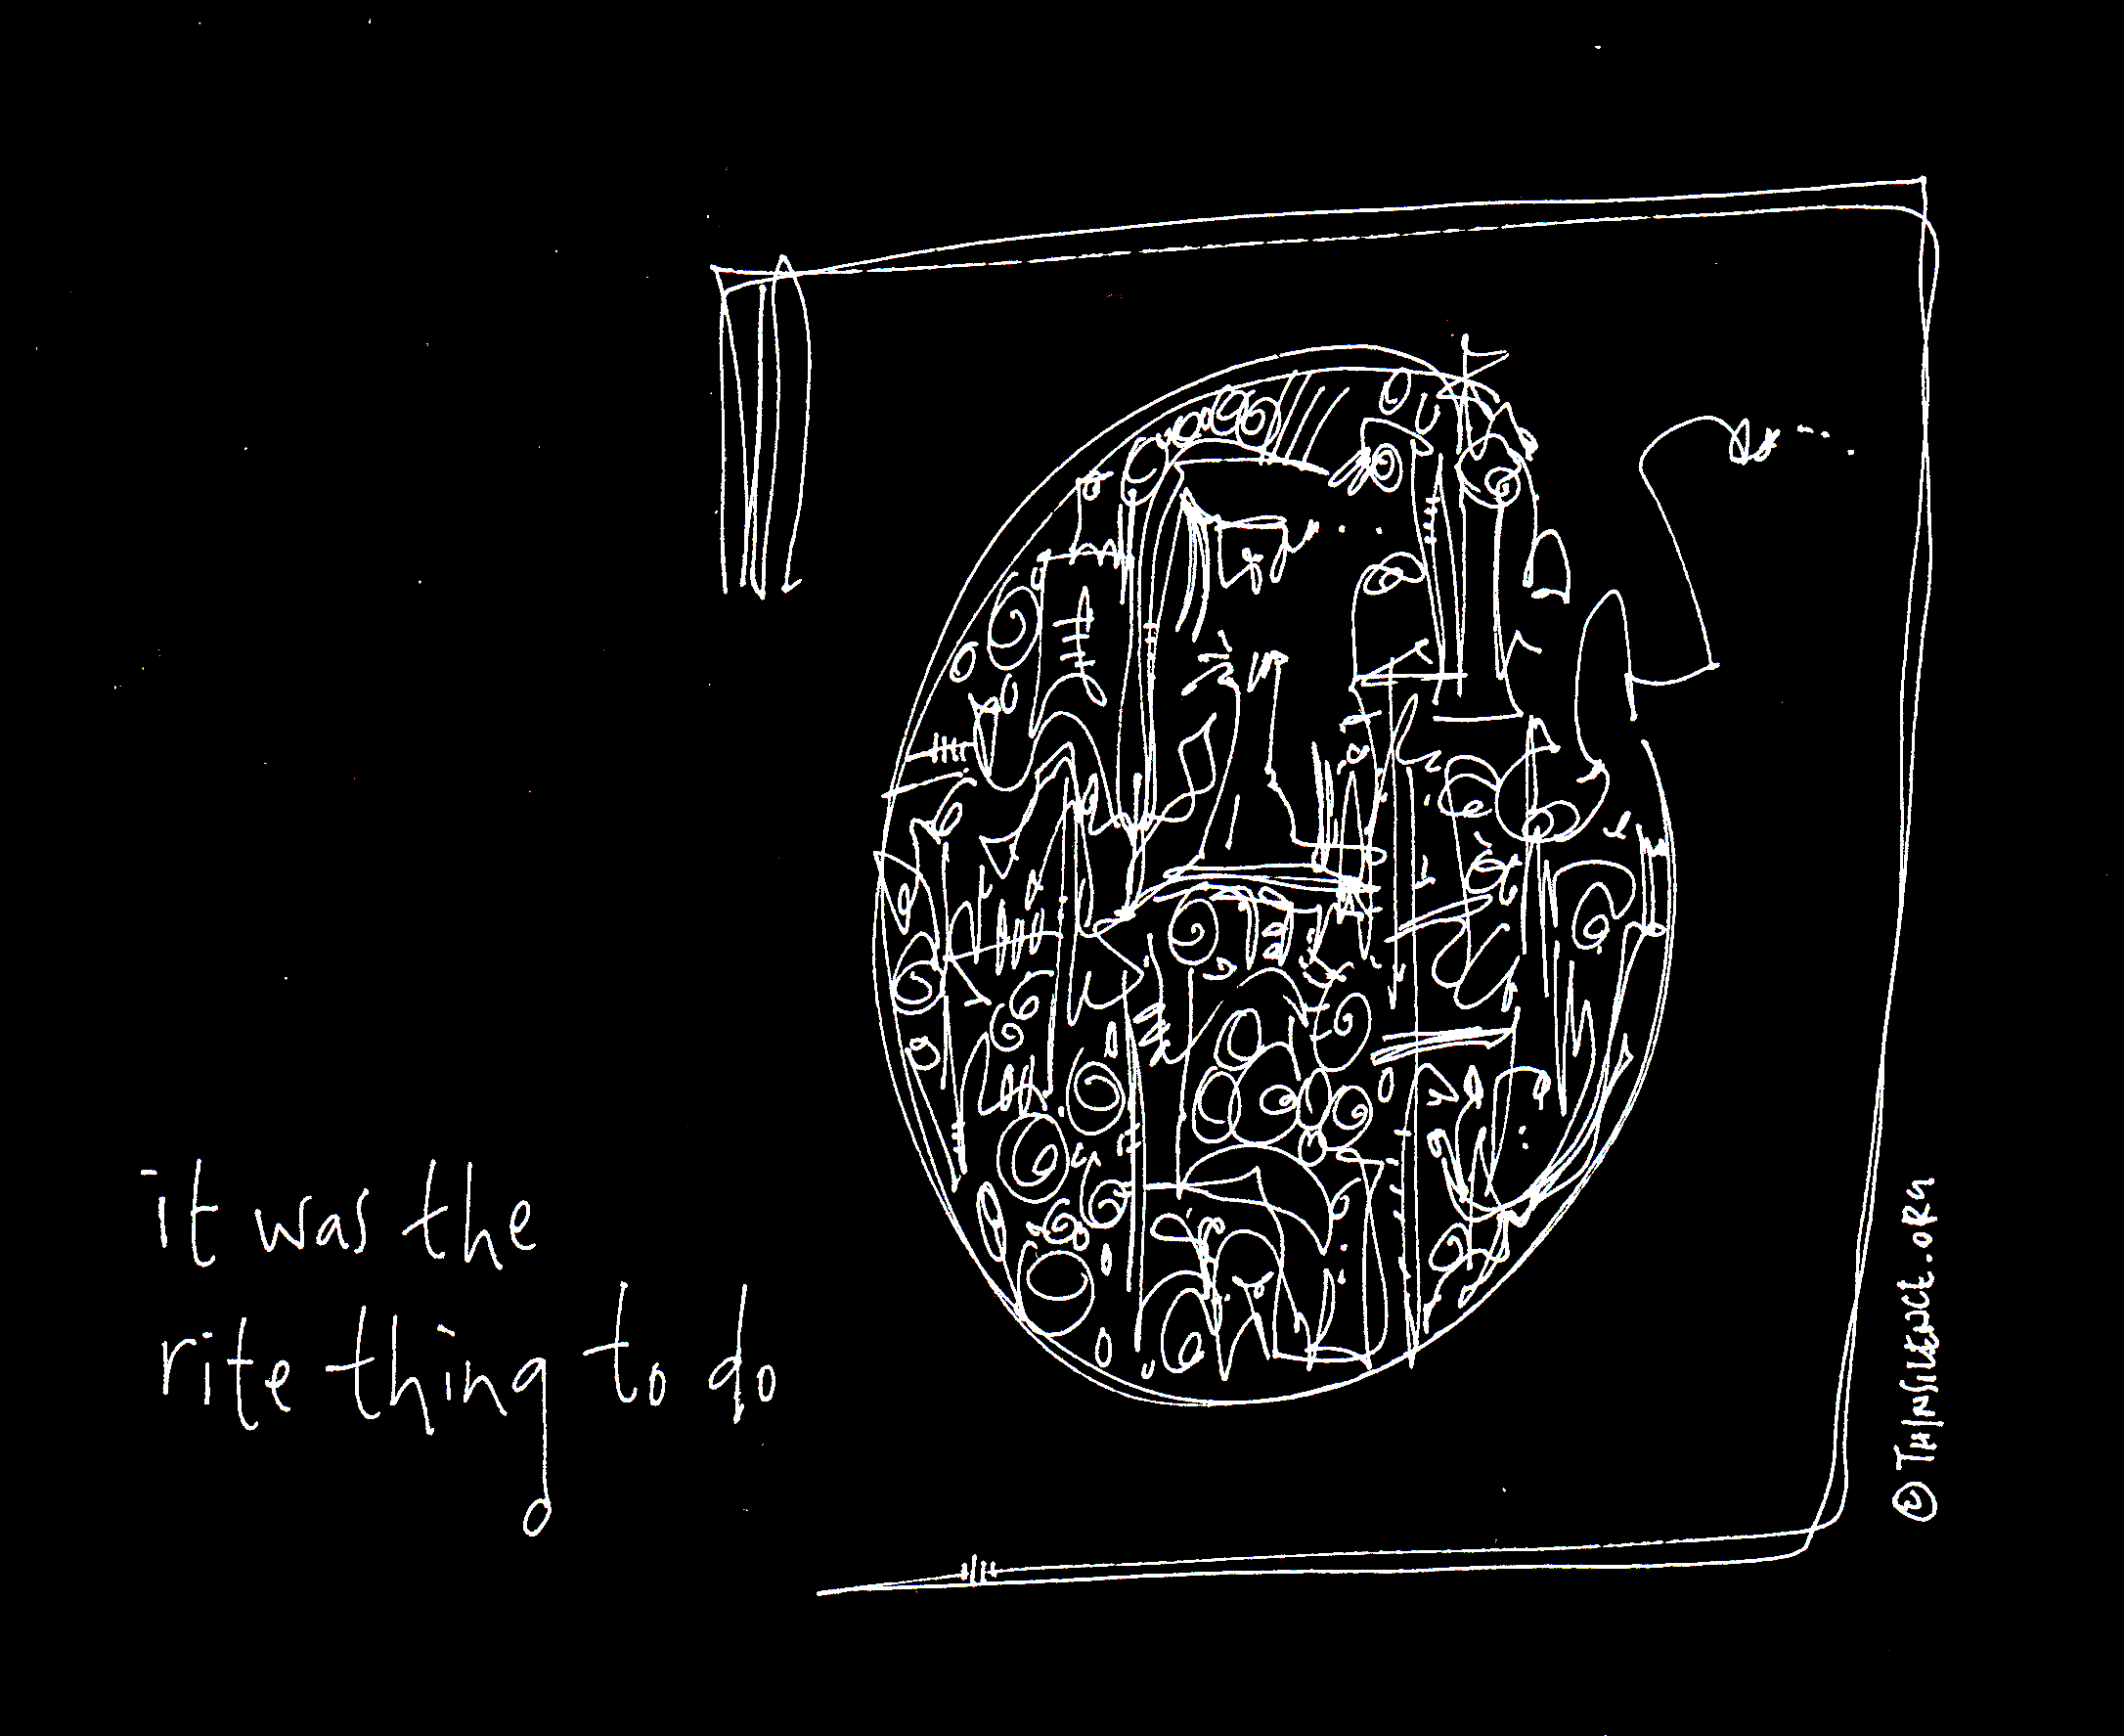 it was the
rite thing to do
© THINSILENCE.ORG